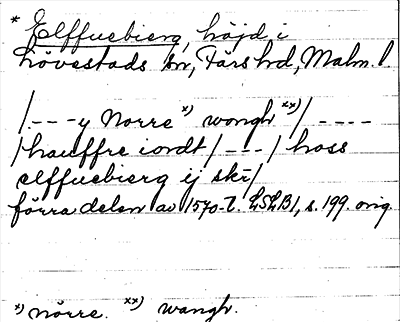 * Elffuebierg, höjd i
Lövestads sn, Färs hd, Malm. l.
/---y Norre *) wongh **)/----
/hauffre iordt/---/hoss
elffuebierg ij skr/
förra delen av 1570-t. LSLB1, s. 199. orig.
*) nörre. **) wangh.